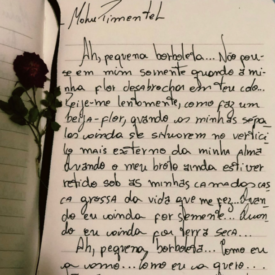 Mohu Pimentel
Ah, pequena borboleta... Não pou-
se em mim somente quando a mi-
nha flor desabrochar em teu
Beije-me lentamente, como faz um
beija-flor, quando as minhas sépa-
las ainda se situarem no vertici-
lo mais externo da minha alma
Quando o meu broto ainda estiver
retido sob as minhas camadas
ca grossa da vida que me fez... Quan-
do eu ainda for semente... Quan-
do eu ainda for terra seca...
Ah, pequena borboleta... Como eu
a amo... Como eu a quero...